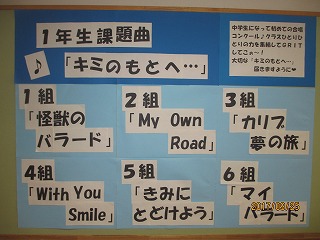 1年生課題曲
♪「キミのもとへ…」
中学生になって初めての合唱
コンクール♪クラスひとりひ
とりの力を集結してGRIT
してこぅ〜!
大切な「キミのもとへ…」
届きますように♥
1組
「怪獣の
バラード」
2組
「My Own
Road」
3組
「カリブ
夢の旅」
4組
「With You
Smile」
5組
「きみに
とどけよう」
6組
「マイ
バラード」